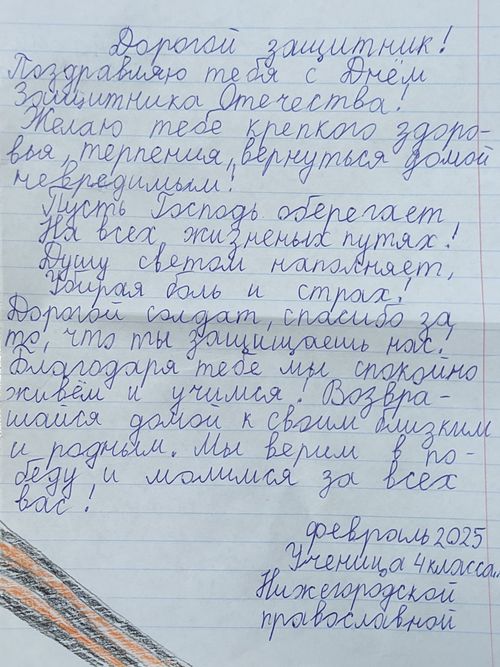 Дорогой защитник!
Поздравляю тебя с Днём
Защитника Отечества!
Желаю тебе крепкого здоро-
вья, терпения, вернуться домой
невредимым!
Пусть Господь оберегает
На всех жизненых путях!
Душу светом наполняет,
Убирая боль и страх!
Дорогой солдат, спасибо за
то, что ты защищаешь нас!
Благодаря тебе мы спокойно
живём и учимся! Возвра-
щайся домой к своим близким
и родным. Мы верим в по-
беду и молимся за всех
вас!
февраль 2025
Ученица 4 класса
Нижегородской
православной